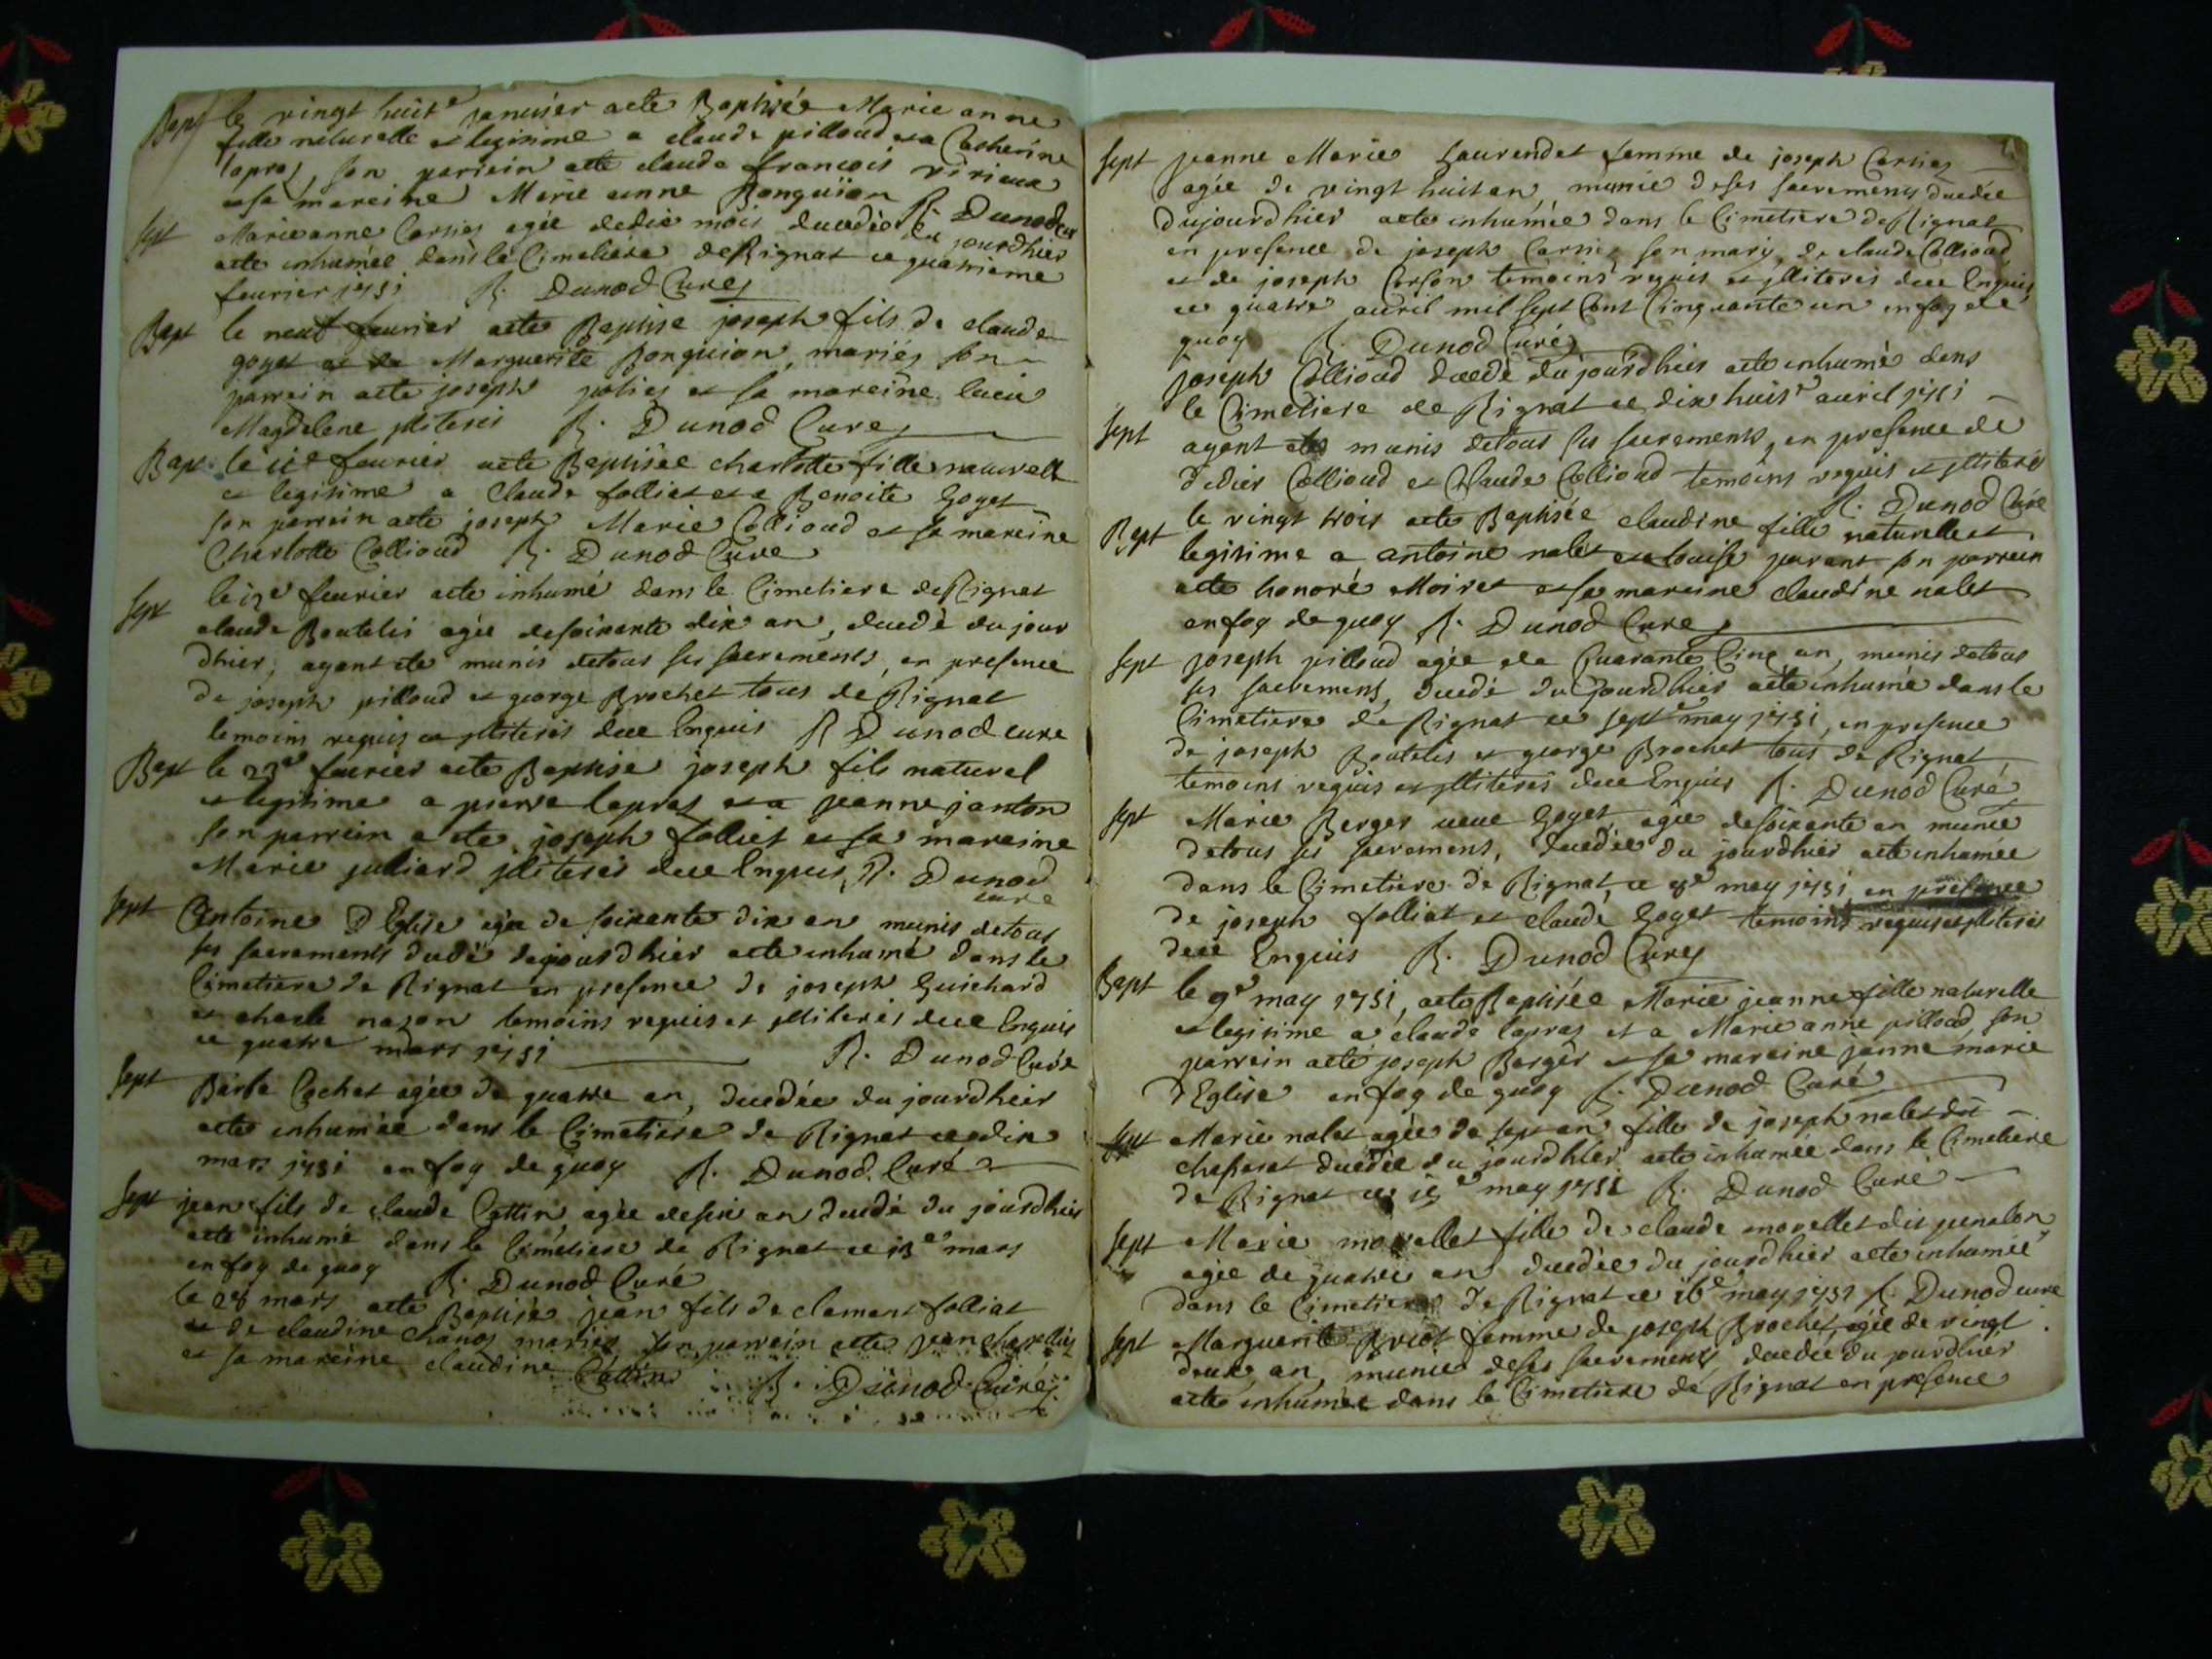 Bapt le vingt huit e januier aete Baptisée Marie anne
fille naturelle et legitime a claude pilloud et a Catherine
lapraz, son parrein aete claude francois virieux
et sa mareine Marie anne Bonguion R. Dunod cure
Sept Marie anne Carrier agée de dix mois decedée du jourdhier
aete inhumée dans le Cimetiere de Rignat ce quatrieme
feurier 1751 R. Dunod Curé
Bapt le neuf feurier aete Baptise joseph fils de claude
goyet et de Marguerite Bonguion, mariés son
parrein aete joseph et sa mareine lucie
Magdelene jlliterés R. Dunod Cure
Bapt le 11e feurier aete Baptisée charlotte fille naturelle
et legitime a Claude folliet et a Benoite Goyet
son parrein aete joseph Marie Collioud et sa mareine
Charlotte Collioud R. Dunod Cure
Sept le feurier aete inhumé dans le Cimetiere de Rignat
claude Boutelis agée de soixante dix an, decedé du jour
dhier, ayant ete munis de tous ses sacrements, en presence
de joseph pilloud et george Brochet tous de Rignat
temoins requis et jlliterés dece Enquis R Dunod cure
Bapt le 23e feurier aete Baptise joseph fils naturel
et legitime a pierre lapraz et a jeanne janton
son parrein aete joseph folliet et sa mareine
Marie julliard jlliterés dece Enquis, R. Dunod
cure
Sept Antoine DEglise agée de soixante dix an munis de tous
ses sacrements decedé du jourdhier aete inhumé dans le
Cimetiere de Rignat en presence de joseph Guichard
et charle nazon temoins requis et jlliterés dece Enquis
ce quatre mars 1751 R. Dunod Curé
Sept Barbe Cochet agée de quatre an, decedée du jourdhier
aete inhumée dans le Cimetiere de Rignat ce dix
mars 1751 en foy de quoy R. Dunod Curé
Sept jean fils de claude Cottin, agée de six an decedé du jourdhier
aete inhumé dans le Cimetiere de Rignat ce 13e mars
en foy de quoy R. Dunod Curé
le 28 mars aete Baptisé jean fils de clement folliat
et de claudine mariés, son parrein aete jean
et sa mareine claudine Cottin R. Dunod Curé
Sept jeanne Marie Laurendet femme de joseph Carrier
agée de vingt huit an, munie de ses sacrements decedée
du jourdhier aete inhumée dans le Cimetiere de Rignat
en presence de joseph Carrier son mary, de claude Collioud
et de joseph temoins requis et jlliterés dece Enquis
ce quatre auril mil sept Cent Cinquante un en foy de
quoy R. Dunod Curé
joseph Collioud decedé du jourdhier aete inhumé dans
le Cimetiere de Rignat ce dix huit e auril 1751
Sept ayant ete munis de tous ses sacrements, en presence de
didier Collioud et Claude Collioud temoins requis et jlliterés
R. Dunod Curé
Bapt le vingt trois aete Baptisée claudine fille naturelle et
legitime a antoine nalet et a louise parant son parrein
aete honoré Moiret et sa mareine claudine nalet
en foy de quoy R. Dunod Cure
Sept joseph pilloud agée de Quarante Cinq an, munis de tous
ses sacremens, decedé du jourdhier aete inhumé dans le
Cimetiere de Rignat ce sept e may 1751, en presence
de joseph Boutelis et george Brochet tous de Rignat,
temoins requis et jlliterés dece Enquis R. Dunod Curé
Sept Marie Berger ueue Goyet agée de soixante an munie
de tous ses sacremens, decedée du jourdhier aete inhumée
dans le Cimetiere de Rignat, ce 8e may 1751 en presence
de joseph folliat et claude Goyet temoins requis et jlliterés
dece Enquis R. Dunod Cure
Bapt le 9e may 1751, aete Baptisée Marie jeanne fille naturelle
et legitime a claude lapraz et a Marie anne pilloud, son
parrein aete joseph Berger et sa mareine janne marie
DEglise en foy de quoy R. Dunod Curé
Sept Marie nalet agée de sept an fille de joseph nalet dit
decedée du jourdhier aete inhumée dans le Cimetiere
de Rignat ce may 1751 R. Dunod Cure
Sept Marie morellet fille de claude morellet dit
agée de quatre an decedée du jourdhier aete inhumée
dans le Cimetiere de Rignat ce 16e may 1751 R. Dunod cure
Sept Marguerite femme de joseph Brochet, agée de vingt
deux an, munie de ses sacrements decedée du jourdhier
aete inhumée dans le Cimetiere de Rignat en presence